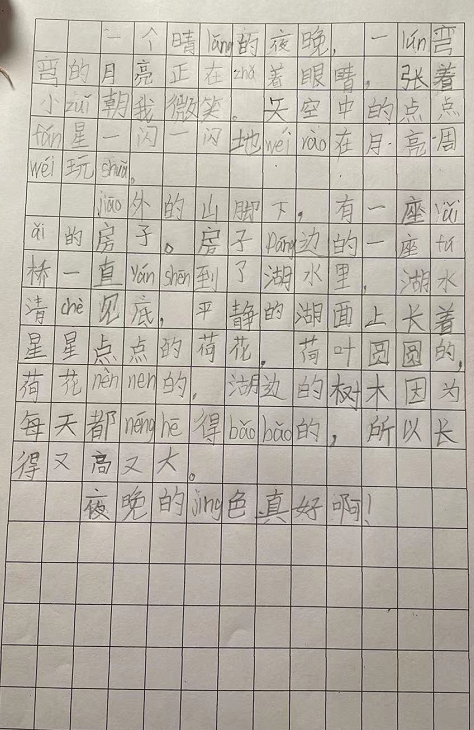 一个晴lǎng的夜晚，一lún弯
弯的月亮正在zhǎ着眼睛，张着
小zuǐ朝我微笑。天空中的点点
fán星一闪一闪地wéi rào在月亮周
wéi玩shuǎ。
jiāo外的山脚下，有一座ǎi
ǎi的房子。房子páng边的一座
桥一直yán shēn到了湖水里，湖水
清chè见底，平静的湖面上长着
星星点点的荷花，荷叶圆圆的，
荷花nèn nen的。湖边的树木因为
每天都néng hē得bǎo bǎo的，所以长
得又高又大。
夜晚的jǐng色真好啊！